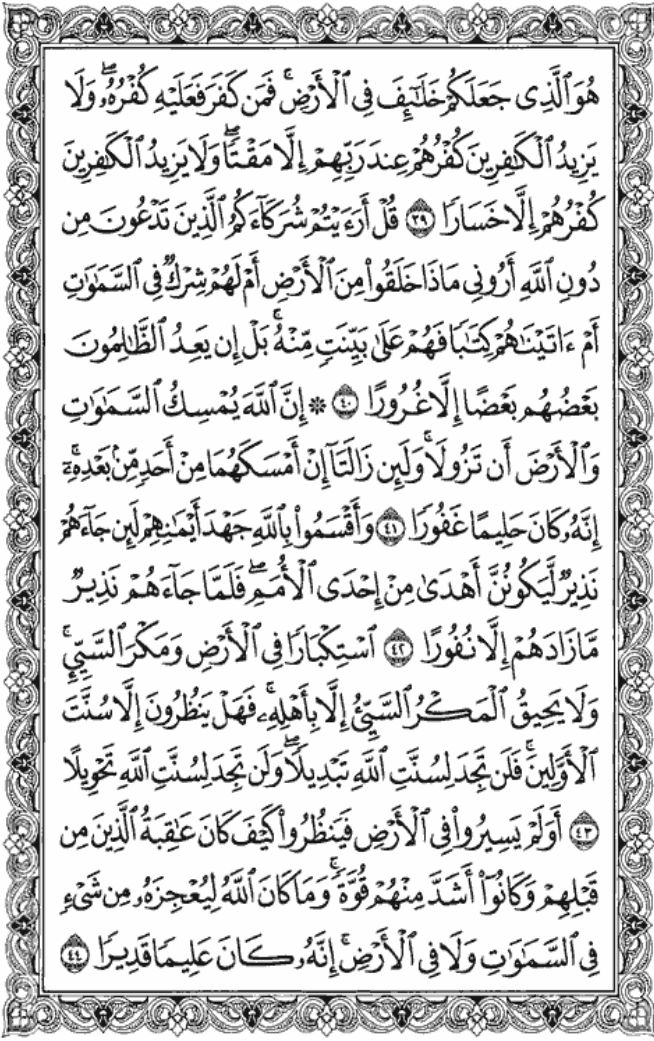 هُوَ ٱلَّذِى جَعَلَكُمْ خَلَٰٓئِفَ فِى ٱلْأَرْضِ ۚ فَمَن كَفَرَ فَعَلَيْهِ كُفْرُهُۥ ۖ وَلَا
يَزِيدُ ٱلْكَٰفِرِينَ كُفْرُهُمْ عِندَ رَبِّهِمْ إِلَّا مَقْتًا ۖ وَلَا يَزِيدُ ٱلْكَٰفِرِينَ
كُفْرُهُمْ إِلَّا خَسَارًا ٣٩ قُلْ أَرَءَيْتُمْ شُرَكَآءَكُمُ ٱلَّذِينَ تَدْعُونَ مِن
دُونِ ٱللَّهِ أَرُونِى مَاذَا خَلَقُوا۟ مِنَ ٱلْأَرْضِ أَمْ لَهُمْ شِرْكٌ فِى ٱلسَّمَٰوَٰتِ
أَمْ ءَاتَيْنَٰهُمْ كِتَٰبًا فَهُمْ عَلَىٰ بَيِّنَتٍ مِّنْهُ ۚ بَلْ إِن يَعِدُ ٱلظَّٰلِمُونَ
بَعْضُهُم بَعْضًا إِلَّا غُرُورًا ٤٠ ۞ إِنَّ ٱللَّهَ يُمْسِكُ ٱلسَّمَٰوَٰتِ
وَٱلْأَرْضَ أَن تَزُولَا ۚ وَلَئِن زَالَتَآ إِنْ أَمْسَكَهُمَا مِنْ أَحَدٍ مِّنۢ بَعْدِهِۦٓ ۚ
إِنَّهُۥ كَانَ حَلِيمًا غَفُورًا ٤١ وَأَقْسَمُوا۟ بِٱللَّهِ جَهْدَ أَيْمَٰنِهِمْ لَئِن جَآءَهُمْ
نَذِيرٌ لَّيَكُونُنَّ أَهْدَىٰ مِنْ إِحْدَى ٱلْأُمَمِ ۖ فَلَمَّا جَآءَهُمْ نَذِيرٌ
مَّا زَادَهُمْ إِلَّا نُفُورًا ٤٢ ٱسْتِكْبَارًا فِى ٱلْأَرْضِ وَمَكْرَ ٱلسَّيِّئِ ۚ
وَلَا يَحِيقُ ٱلْمَكْرُ ٱلسَّيِّئُ إِلَّا بِأَهْلِهِۦ ۚ فَهَلْ يَنظُرُونَ إِلَّا سُنَّتَ
ٱلْأَوَّلِينَ ۚ فَلَن تَجِدَ لِسُنَّتِ ٱللَّهِ تَبْدِيلًا ۖ وَلَن تَجِدَ لِسُنَّتِ ٱللَّهِ تَحْوِيلًا
٤٣ أَوَلَمْ يَسِيرُوا۟ فِى ٱلْأَرْضِ فَيَنظُرُوا۟ كَيْفَ كَانَ عَٰقِبَةُ ٱلَّذِينَ مِن
قَبْلِهِمْ وَكَانُوٓا۟ أَشَدَّ مِنْهُمْ قُوَّةً ۚ وَمَا كَانَ ٱللَّهُ لِيُعْجِزَهُۥ مِن شَىْءٍ
فِى ٱلسَّمَٰوَٰتِ وَلَا فِى ٱلْأَرْضِ ۚ إِنَّهُۥ كَانَ عَلِيمًا قَدِيرًا ٤٤